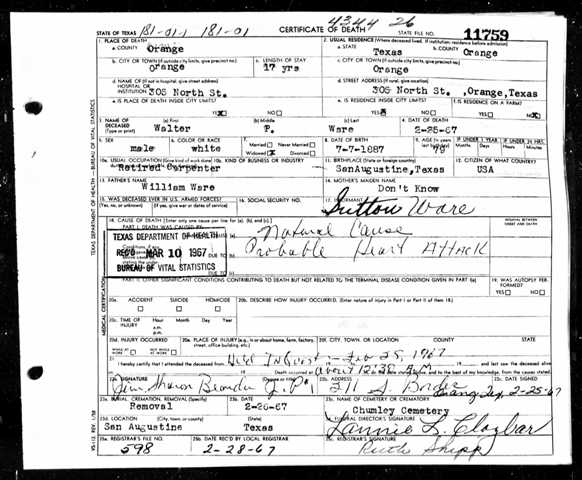 4344 26
STATE OF TEXAS 181-01-1 181-01 CERTIFICATE OF DEATH STATE FILE NO. 11759
1. PLACE OF DEATH
a. COUNTY Orange
2. USUAL RESIDENCE (Where deceased lived. If institution: residence before admission)
a. STATE Texas b. COUNTY Orange
b. CITY OR TOWN (If outside city limits, give precinct no.) Orange
c. LENGTH OF STAY 17 yrs
c. CITY OR TOWN (If outside city limits, give precinct no.) Orange
d. NAME OF (If not in hospital, give street address) HOSPITAL OR INSTITUTION 305 North St.
d. STREET ADDRESS (If rural, give location) 305 North St. ,Orange,Texas
e. IS PLACE OF DEATH INSIDE CITY LIMITS? YES NO
e. IS RESIDENCE INSIDE CITY LIMITS? YES NO
f. IS RESIDENCE ON A FARM? YES NO
3. NAME OF DECEASED (Type or print)
(a) First Walter
(b) Middle P.
(c) Last Ware
4. DATE OF DEATH 2-25-67
5. SEX male
6. COLOR OR RACE white
7. Married Never Married Widowed Divorced
8. DATE OF BIRTH 7-7-1887
9. AGE 79
IF UNDER 1 YEAR
IF UNDER 24 HRS.
10a. USUAL OCCUPATION (Give kind of work done) Retired Carpenter
10b. KIND OF BUSINESS OR INDUSTRY
11. BIRTHPLACE (State or foreign country) SanAugustine,Texas
12. CITIZEN OF WHAT COUNTRY? USA
13. FATHER'S NAME William Ware
14. MOTHER'S MAIDEN NAME Don't Know
15. WAS DECEASED EVER IN U.S. ARMED FORCES? (Yes, no, or unknown) (If yes, give war or dates of service)
16. SOCIAL SECURITY NO.
17. INFORMANT Sutton Ware
18. CAUSE OF DEATH [Enter only one cause per line for (a), (b), and (c).]
INTERVAL BETWEEN ONSET AND DEATH
PART I. DEATH WAS CAUSED BY:
Natural Cause
Probable Heart Attack
TEXAS DEPARTMENT OF HEALTH
REC'D MAR 10 1967
BUREAU OF VITAL STATISTICS
DUE TO
DUE TO
PART II. OTHER SIGNIFICANT CONDITIONS CONTRIBUTING TO DEATH BUT NOT RELATED TO THE TERMINAL DISEASE CONDITION GIVEN IN PART I(a)
19. WAS AUTOPSY PERFORMED? YES NO
20a. ACCIDENT SUICIDE HOMICIDE
20b. DESCRIBE HOW INJURY OCCURRED. (Enter nature of injury in Part I or Part II of item 18.)
20c. TIME OF INJURY Hour Month Day Year
a.m.
p.m.
20d. INJURY OCCURRED WHILE AT WORK NOT WHILE AT WORK
20e. PLACE OF INJURY (e.g., in or about home, farm, factory, street, office building, etc.)
20f. CITY, TOWN, OR LOCATION COUNTY STATE
21. I hereby certify that I attended the deceased from Held Inquest - Feb 25, 1967
Death occurred at about 12:30 on the date stated above, and to the best of my knowledge, from the causes stated.
22a. SIGNATURE (Degree or title) J.P.
22b. ADDRESS 211 S. Border Orange, Tex
22c. DATE SIGNED 2-25-67
23a. BURIAL, CREMATION, REMOVAL (Specify) Removal
23b. DATE 2-26-67
23c. NAME OF CEMETERY OR CREMATORY Chumley Cemetery
23d. LOCATION (City, town, or county) (State) San Augustine Texas
24. FUNERAL DIRECTOR'S SIGNATURE Lannie L. Claybar
25a. REGISTRAR'S FILE NO. 598
25b. DATE REC'D BY LOCAL REGISTRAR 2-28-67
25c. REGISTRAR'S SIGNATURE Ruth Shipp
TEXAS DEPARTMENT OF HEALTH — BUREAU OF VITAL STATISTICS
MEDICAL CERTIFICATION
VS-112 REV. 1/58